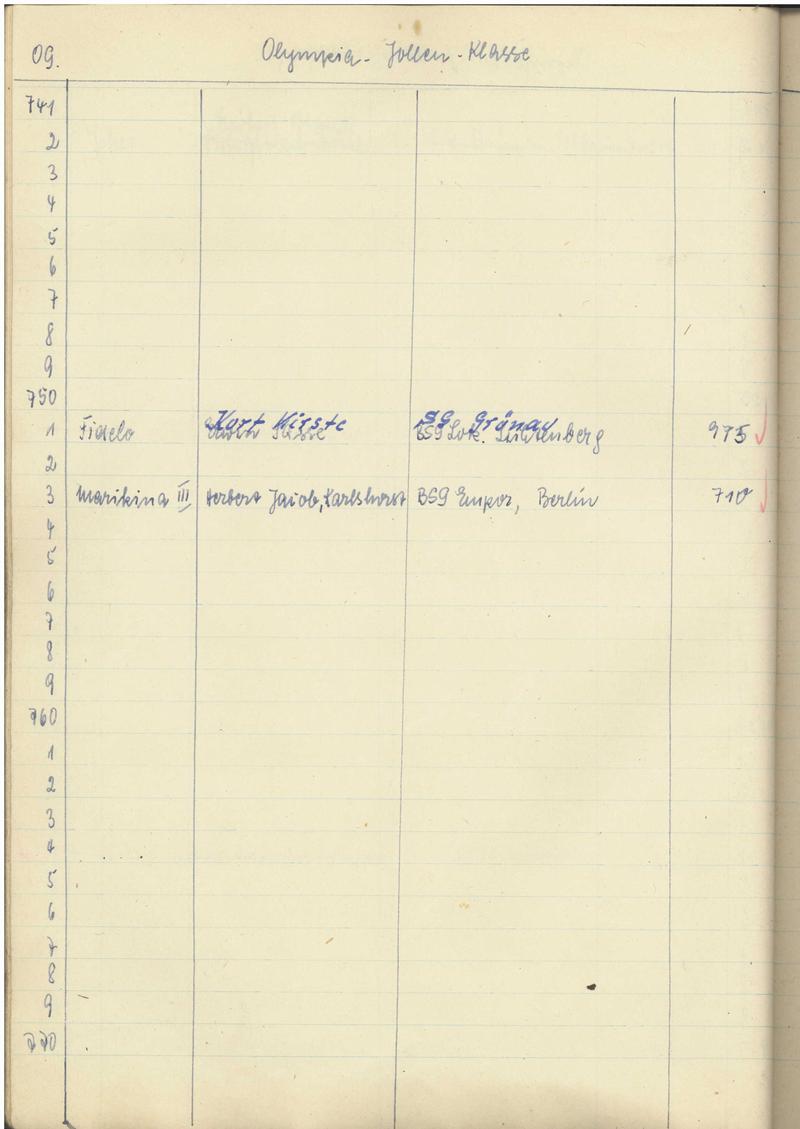 09. Olympia-Jollen-Klasse
741
2
3
4
5
6
7
8
9
750
Kurt Kirste SG Grünau
1 Fidelo BSG Lok. Lichtenberg 975
2
3 Marikina III Herbert Jacob, Karlshorst BSG Empor, Berlin 710
4
5
6
7
8
9
760
1
2
3
4
5
6
7
8
9
770